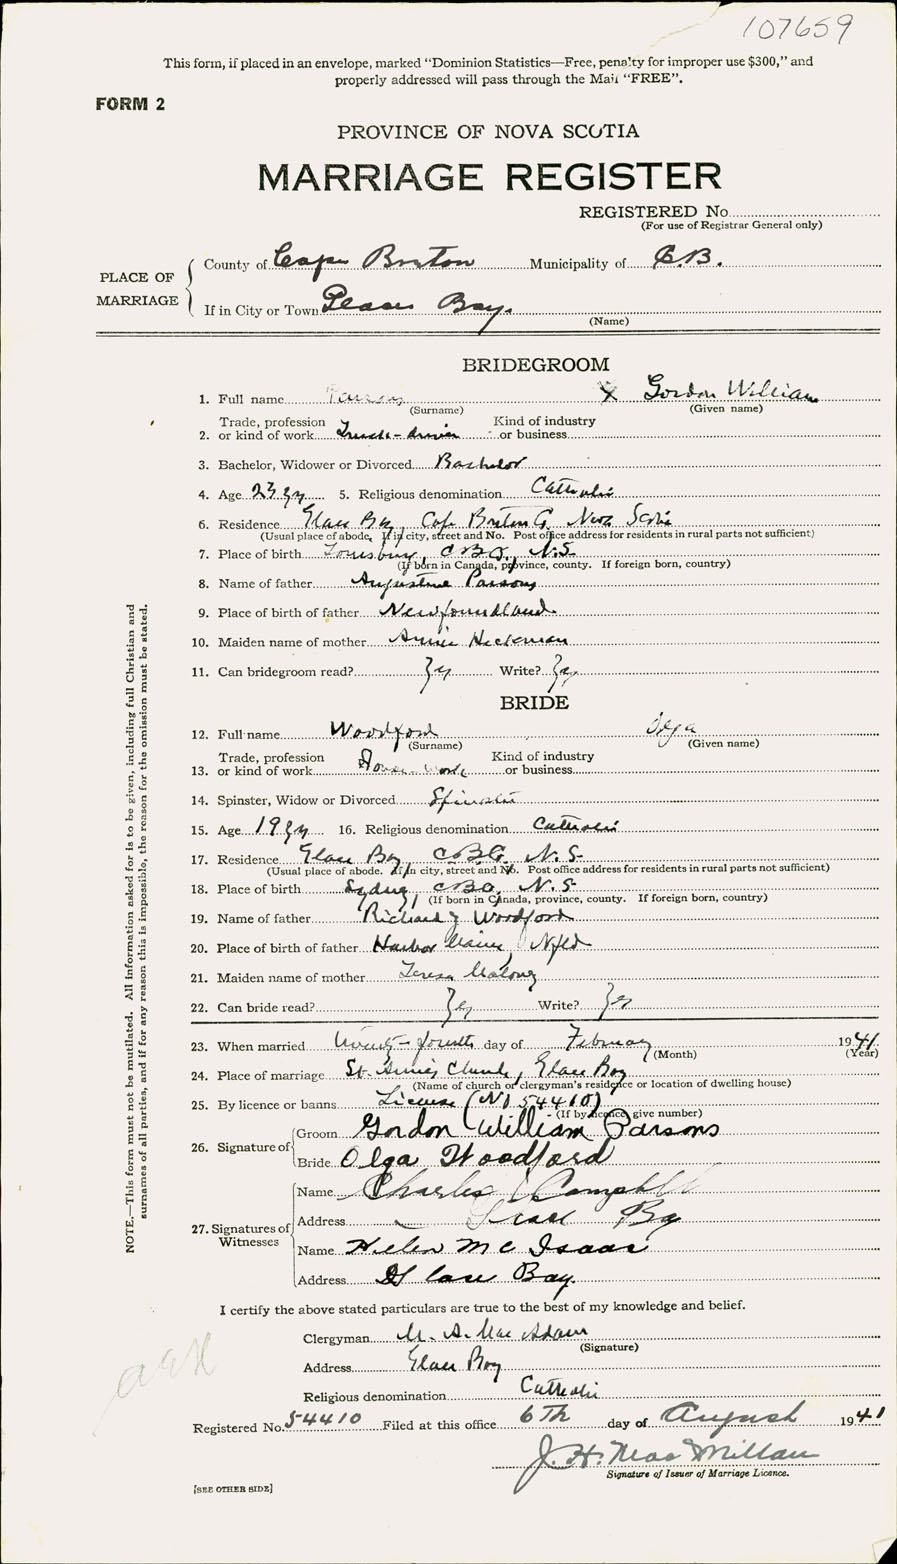 107659
This form, if placed in an envelope, marked "Dominion Statistics—Free, penalty for improper use $300," and
properly addressed will pass through the Mail "FREE".
FORM 2
PROVINCE OF NOVA SCOTIA
MARRIAGE REGISTER
REGISTERED No.
(For use of Registrar General only)
PLACE OF MARRIAGE
County of Cape Breton Municipality of C.B.
If in City or Town Glace Bay.
(Name)
BRIDEGROOM
1. Full name Parsons X Gordon William
(Surname) (Given name)
2. Trade, profession or kind of work Truck-driver Kind of industry or business
3. Bachelor, Widower or Divorced Bachelor
4. Age 23 yr 5. Religious denomination Catholic
6. Residence Glace Bay, Cape Breton Co, Nova Scotia
(Usual place of abode. If in city, street and No. Post office address for residents in rural parts not sufficient)
7. Place of birth Louisburg, C B Co., N.S
(If born in Canada, province, county. If foreign born, country)
8. Name of father Augustine Parsons
9. Place of birth of father Newfoundland
10. Maiden name of mother Annie Hickman
11. Can bridegroom read? Write?
BRIDE
12. Full name Woodford Olga
(Surname) (Given name)
13. Trade, profession or kind of work House-work Kind of industry or business
14. Spinster, Widow or Divorced Spinster
15. Age 19 yr 16. Religious denomination Catholic
17. Residence Glace Bay, C B Co, N. S.
(Usual place of abode. If in city, street and No. Post office address for residents in rural parts not sufficient)
18. Place of birth Sydney, C B Co, N. S
(If born in Canada, province, county. If foreign born, country)
19. Name of father Richard J Woodford
20. Place of birth of father Harbor Maine, Nfld
21. Maiden name of mother Teresa Maloney
22. Can bride read? Write?
23. When married twenty-fourth day of February 1941.
(Month) (Year)
24. Place of marriage St. Anne's Church, Glace Bay
(Name of church or clergyman's residence or location of dwelling house)
25. By licence or banns License (No 54410)
(If by licence, give number)
26. Signature of Groom Gordon William Parsons
Bride Olga Woodford
27. Signatures of Witnesses
Name Charles Campbell
Address Glace Bay
Name Helen Mc Isaac
Address Glace Bay.
I certify the above stated particulars are true to the best of my knowledge and belief.
Clergyman M. A. Mac Adam
(Signature)
Address Glace Bay
Religious denomination Catholic
Registered No. 54410 Filed at this office 6th day of August 1941
J. H. Mac Millan
Signature of Issuer of Marriage Licence.
[SEE OTHER SIDE]
NOTE.—This form must not be mutilated. All information asked for is to be given, including full Christian and
surnames of all parties, and if for any reason this is impossible, the reason for the omission must be stated.